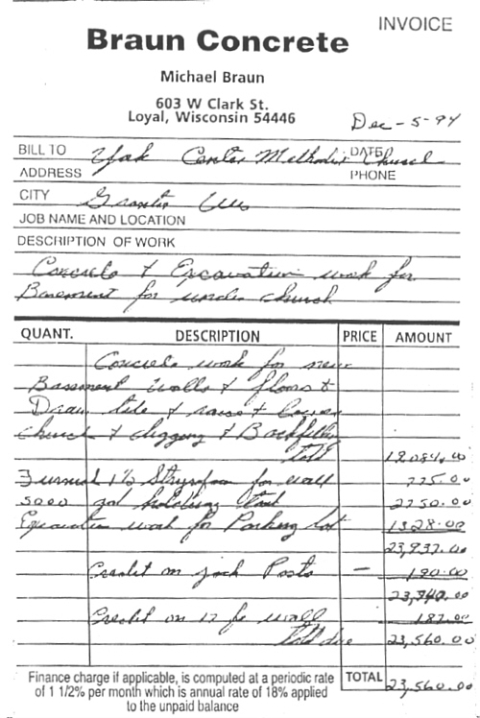 INVOICE
Braun Concrete
Michael Braun
603 W Clark St.
Loyal, Wisconsin 54446
Dec-5-94
BILL TO York Center Methodist Church DATE
ADDRESS PHONE
CITY Granton Wis
JOB NAME AND LOCATION
DESCRIPTION OF WORK
Concrete & Excavation work for
Basement for under church
QUANT. DESCRIPTION PRICE AMOUNT
Concrete work for new
Basement walls & floors &
Drain tile & raise & lower
church & digging & Backfilling
total 19,084.00
1 1/2 Styrofoam for wall 775.00
5000 gal holding tank 2750.00
Excavation work for Parking lot 1328.00
23,937.00
Credit on jack Posts — 190.00
23,747.00
Credit on 12 wall 187.00
total due 23,560.00
Finance charge if applicable, is computed at a periodic rate TOTAL 23,560.00
of 1 1/2% per month which is annual rate of 18% applied
to the unpaid balance